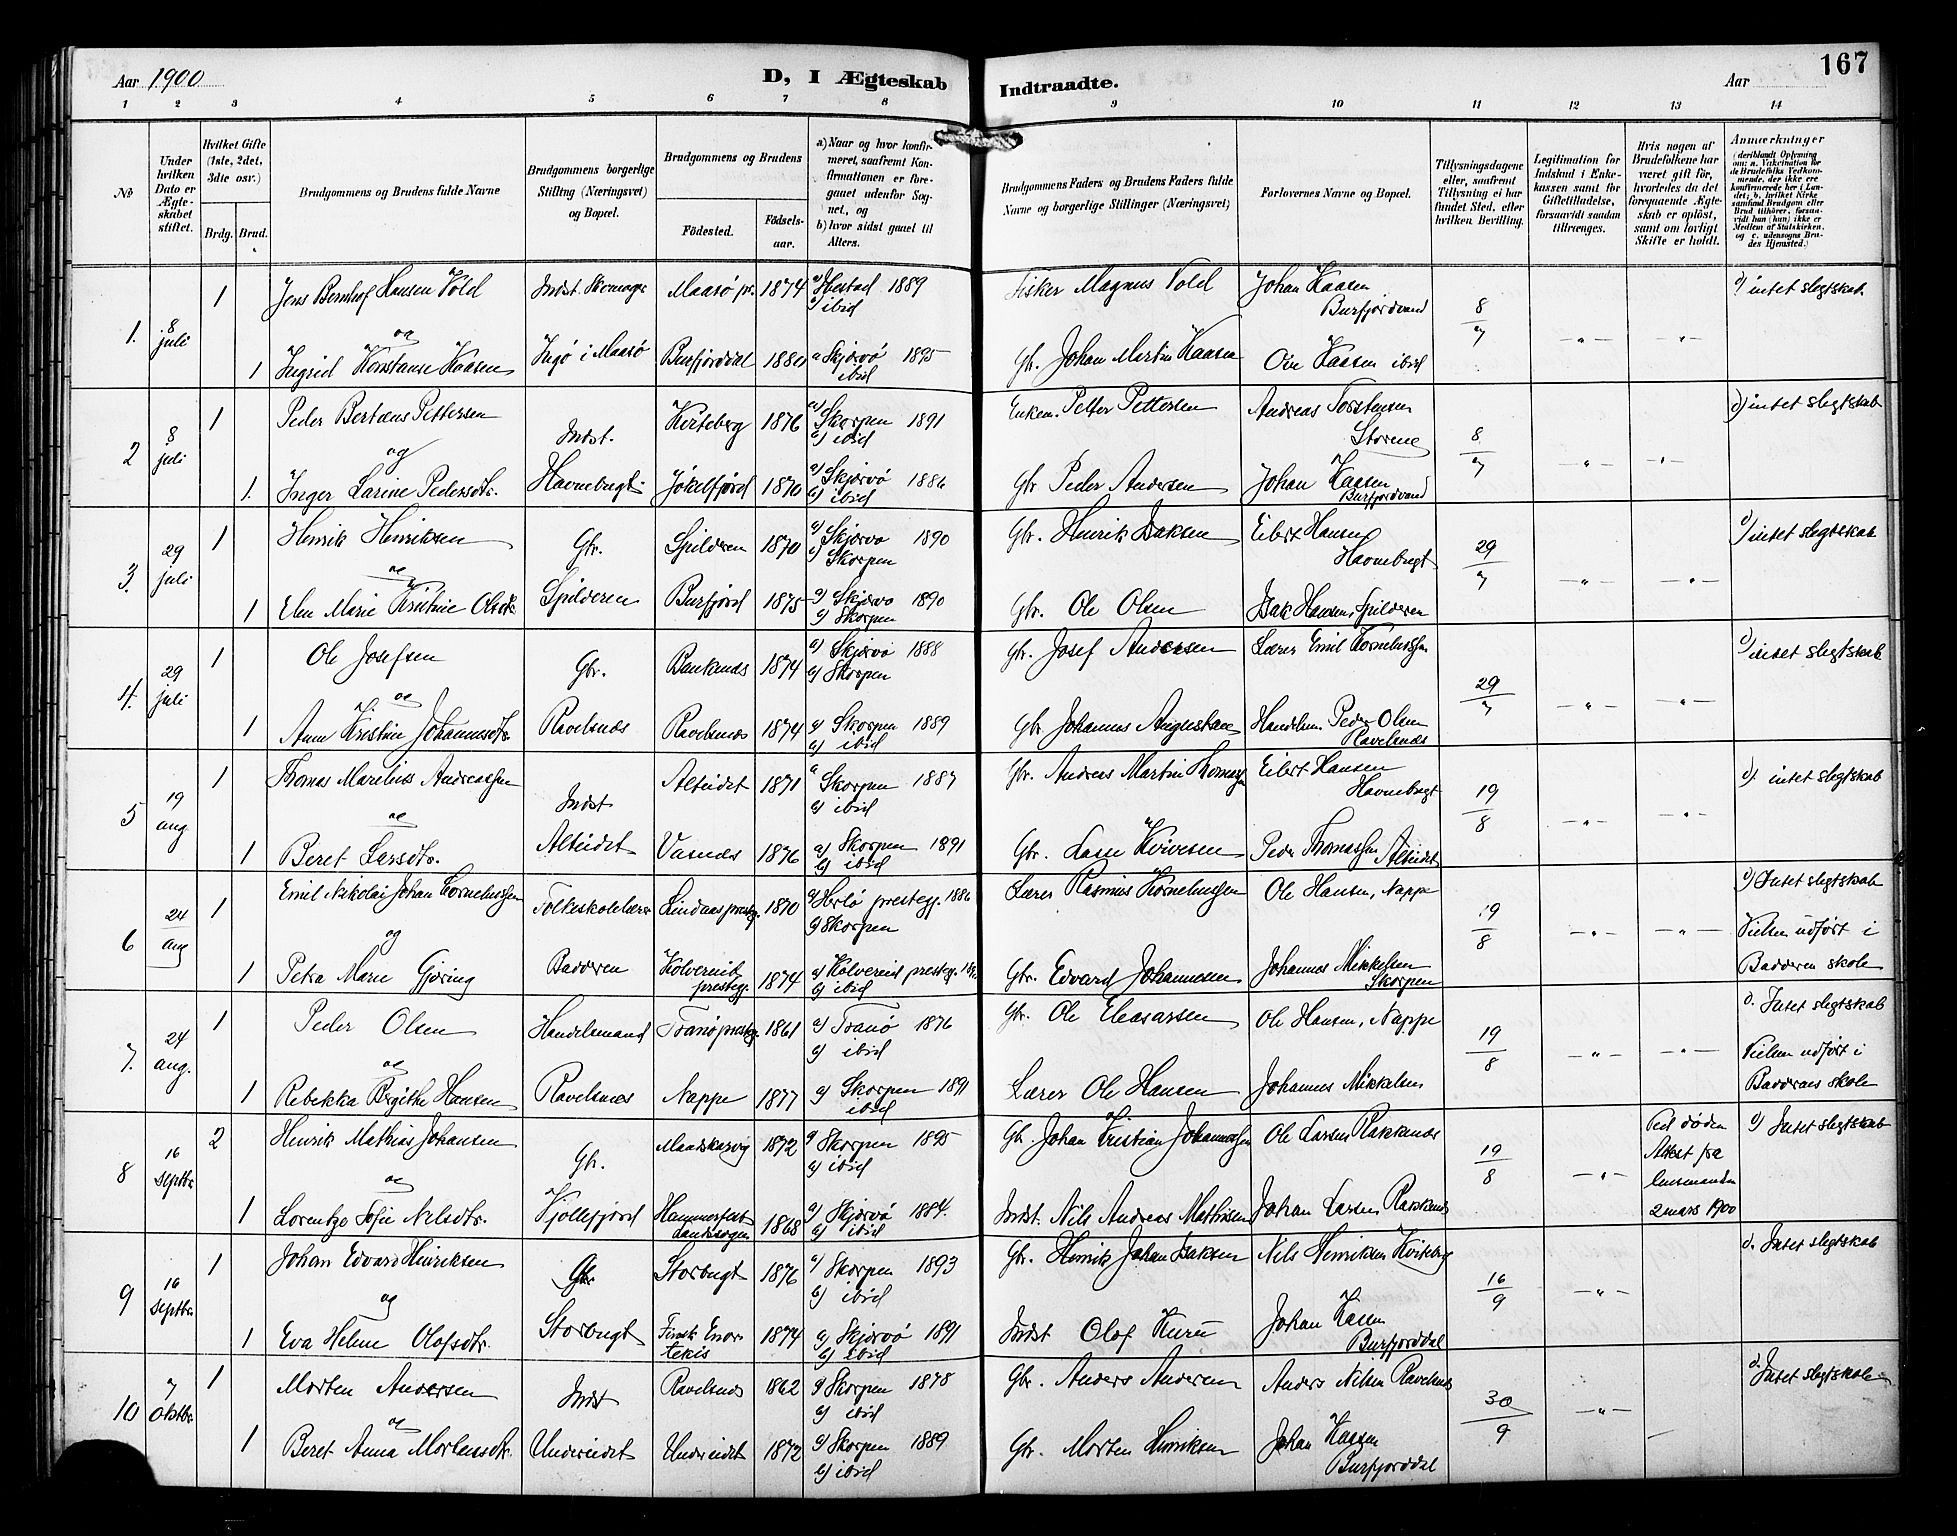 167
Aar 1900
D, I Ægteskab Indtraadte.
Aar
1 2 3 4 5 6 7 8 9 10 11 12 13 14
No.
Under hvilken Dato er Ægteskabet stiftet.
Hvilket Gifte (1ste, 2det, 3die osv.)
Brdg. Brud.
Brudgommens og Brudens fulde Navne
Brudgommens borgerlige Stilling (Næringsvei) og Bopæl.
Brudgommens og Brudens
Fødested.
Fødselsaar.
a) Naar og hvor konfirmeret, saafremt Konfirmationen er foregaaet udenfor Sognet, og
b) hvor sidst gaaet til Alters.
Brudgommens Faders og Brudens Faders fulde Navne og borgerlige Stillinger (Næringsvei)
Forlovernes Navne og Bopæl.
Tillysningsdagene eller, saafremt Tillysning ei har fundet Sted, efter hvilken Bevilling.
Legitimation for Indskud i Enkekassen samt for Giftetilladelse, forsaavidt saadan tiltrænges.
Hvis nogen af Brudefolkene har været gift før, hvorledes da det foregaaende Ægteskab er opløst, samt om lovligt Skifte er holdt.
Anmærkninger
1. 8 juli
1 Jens Bernhof Hansen Vold Indst. Skomager Maasø pr. 1874 a) Ibestad 1889 b) ibid Fisker Magnus Vold Johan Kaasen Burfjordvand 8/7 c) intet slegtskab
og
1 Ingrid Konstanse Kaasen Ingø i Maasø Burfjorddal 1880 a Skjærvø 1895 ibid Gb. Johan Martin Kaasen Ove Kaasen ibid
2 8 juli
1 Peder Bertæus Pettersen Indst. Kviteberg 1876 a) Skorpen 1891 b) ibid Enkem. Petter Pettersen Andreas Torstensen Storene 8/7 c) intet slegtskab
og
1. Inger Larine Pedersdtr. Havnebugt Jøkelfjord 1870 a) Skjærvø 1886 b) ibid Gbr Peder Andersen Johan Kaasen Burfjordvand
3. 29 juli
1 Henrik Henriksen Gbr. Spilderen 1870 a) Skjærvø 1890 b) Skorpen Gbr. Henrik Isaksen Eilert Hansen Havnebugt 29/7 c) intet slegtskab
og
1 Elen Marie Kristine Olsdtr Spilderen Burfjord 1875 a) Skjærvø 1890 b) Skorpen Gbr. Ole Olsen Isak Hansen, Spilderen
4. 29 juli
1 Ole Josefsen Gbr. 1874 a) Skjærvø 1888 b) Skorpen Gbr. Josef Andersen Lærer Emil Korneliussen 29/7 c) intet slegtskab
og
1 Anne Kristine Johannesdtr. Ravelsnæs Ravelsnæs 1874 a) Skorpen 1889 b) ibid Gbr Johannes Handelsm. Peder Olsen Ravelsnæs
5 19 aug.
1 Thomas Marelius Andreassen Indst Alteidet 1871 a Skorpen 1887 b) ibid Gbr. Andreas Martin Thomassen Eilert Hansen Havnebugt 19/8 c) intet slegtskab
og
1 Beret Larsdtr. Alteidet Vasnæs 1876 a) Skorpen 1891 b) ibid Gbr. Lasse Kvivesen Peder Thomassen Alteidet
6 24 aug
1 Emil Nikolai Johan Korneliussen Folkeskolelærer Lindaas prestg. 1870 a) Herlø prestegj. 1886 b) Skorpen Lærer Rasmus Korneliussen Ole Hansen, Nappe 19/8 c) Intet slegtskab Vielsen udført i Badderen skole
og
1 Petra Marie Gjøring Badderen Kolvereid prestegj. 1874 a) Kolvereid prestegj. b) ibid Gbr. Edvard Johannesen Johannes Mikkelsen Skorpen
7. 24 aug.
1 Peder Olsen Handelsmand Tranø prestg. 1861 a) Tranø 1876 b) ibid Gbr. Ole Eleasarsen Ole Hansen, Nappe 19/8 c. Intet slegtskab Vielsen udført i Badderens skole
og
1 Rebekka Birgithe Hansen Ravelsnæs Nappe 1877 a) Skorpen 1891 ibid Lærer Ole Hansen Johannes Mikkelsen
8 16 septbr.
2 Henrik Mathias Johansen Gbr. 1872 a) Skorpen 1895 b) ibid Gb. Johan Kristian Johannessen Ole Larsen Rakkenæs 19/8 Ved døden Attest fra lensmanden 2 mars 1900 c) Intet slegtskab
og
1 Lorentze Sofie Nilsdtr. Kjøllefjord Hammerfest Landssogn 1868 a) Skjærvø 1884. b) ibid Indst. Nils Andreas Mathisen Johan Larsen Rakkenæs
9 16 septbr.
1 Johan Edvard Henriksen Gbr Storbugt 1876 a) Skorpen 1893 b) ibid Gbr. Henrik Johan Isaksen Nils Henriksen Kviteberg 16/9 c. Intet slegtskab
og
1 Eva Helene Olofsdtr. Storbugt Finsk Enontekis 1874 a) Skjærvø 1891 b) ibid Indst Olof Kuru Johan Kaasen Burfjorddal
10 7 oktbr.
1 Morten Andersen Indst Ravelsnæs 1862 a) Skorpen 1878 b) ibid Gbr. Anders Andersen Anders Nilsen Ravelsnæs 30/9 c. Intet slegtskab
og
1 Beret Anna Mortensdtr. Undereidet Undereidet 1872 a) Skorpen 1889 b) ibid Gbr. Morten Henriksen Johan Kaasen Burfjorddal